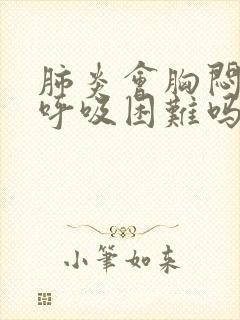 肺炎會胸悶
呼吸困難嗎
小筆如来